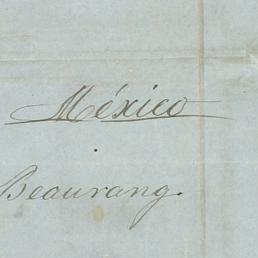 México
Beaurang.